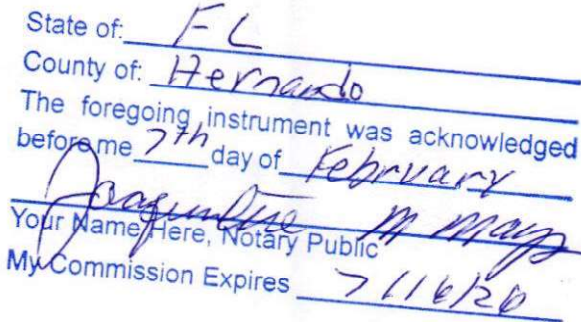 State of: FL
County of: Hernando
The foregoing instrument was acknowledged
before me 7th day of February
Jacqueline M Mays
Your Name Here, Notary Public
My Commission Expires 7/16/26